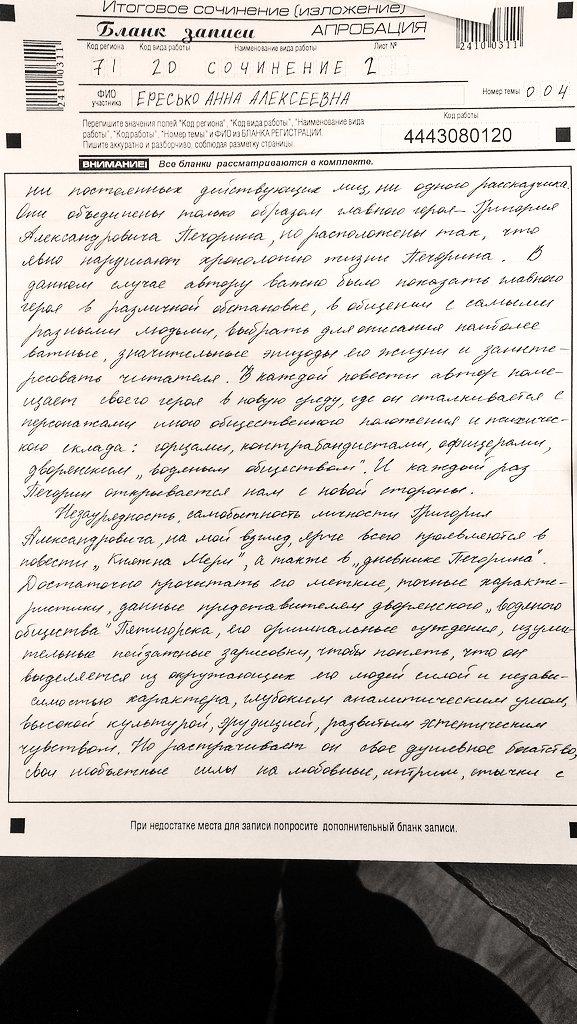 Итоговое сочинение (изложение)
Бланк записи АПРОБАЦИЯ
2410 0311
2410 0311
Код региона Код вида работы Наименование вида работы Лист №
71 20 СОЧИНЕНИЕ 2
ФИО участника ЕРЕСЬКО АННА АЛЕКСЕЕВНА Номер темы 004
Перепишите значения полей "Код региона", "Код вида работы", "Наименование вида
работы", "Код работы", "Номер темы" и ФИО из БЛАНКА РЕГИСТРАЦИИ.
Пишите аккуратно и разборчиво, соблюдая разметку страницы
Код работы
4443080120
ВНИМАНИЕ! Все бланки рассматриваются в комплекте.
ни постоянных действующих лиц, ни одного рассказчика.
Они объединены только образом главного героя – Григория
Александровича Печорина, но расположены так, что
явно нарушают хронологию жизни Печорина. В
данном случае автору важно было показать главного
героя в различной обстановке, в общении с самыми
разными людьми, выбрать для описания наиболее
важные, значительные эпизоды его жизни и заинте-
ресовать читателя. В каждой повести автор поме-
щает своего героя в новую среду, где он сталкивается с
персонажами иного общественного положения и психичес-
кого склада: горцами, контрабандистами, офицерами,
дворянским „водяным обществом". И каждый раз
Печорин открывается нам с новой стороны.
Незаурядность, самобытность личности Григория
Александровича, на мой взгляд, ярче всего проявляются в
повести „Княжна Мери", а также в „дневнике Печорина".
Достаточно прочитать его меткие, точные характе-
ристики, данные представителям дворянского „водяного
общества" Пятигорска, его оригинальные суждения, изуми-
тельные пейзажные зарисовки, чтобы понять, что он
выделяется из окружающих его людей силой и незави-
симостью характера, глубоким аналитическим умом,
высокой культурой, эрудицией, развитым эстетическим
чувством. Но растрачивает он свое душевное богатство,
свои необъятные силы на любовные, интриги, стычки с
При недостатке места для записи попросите дополнительный бланк записи.